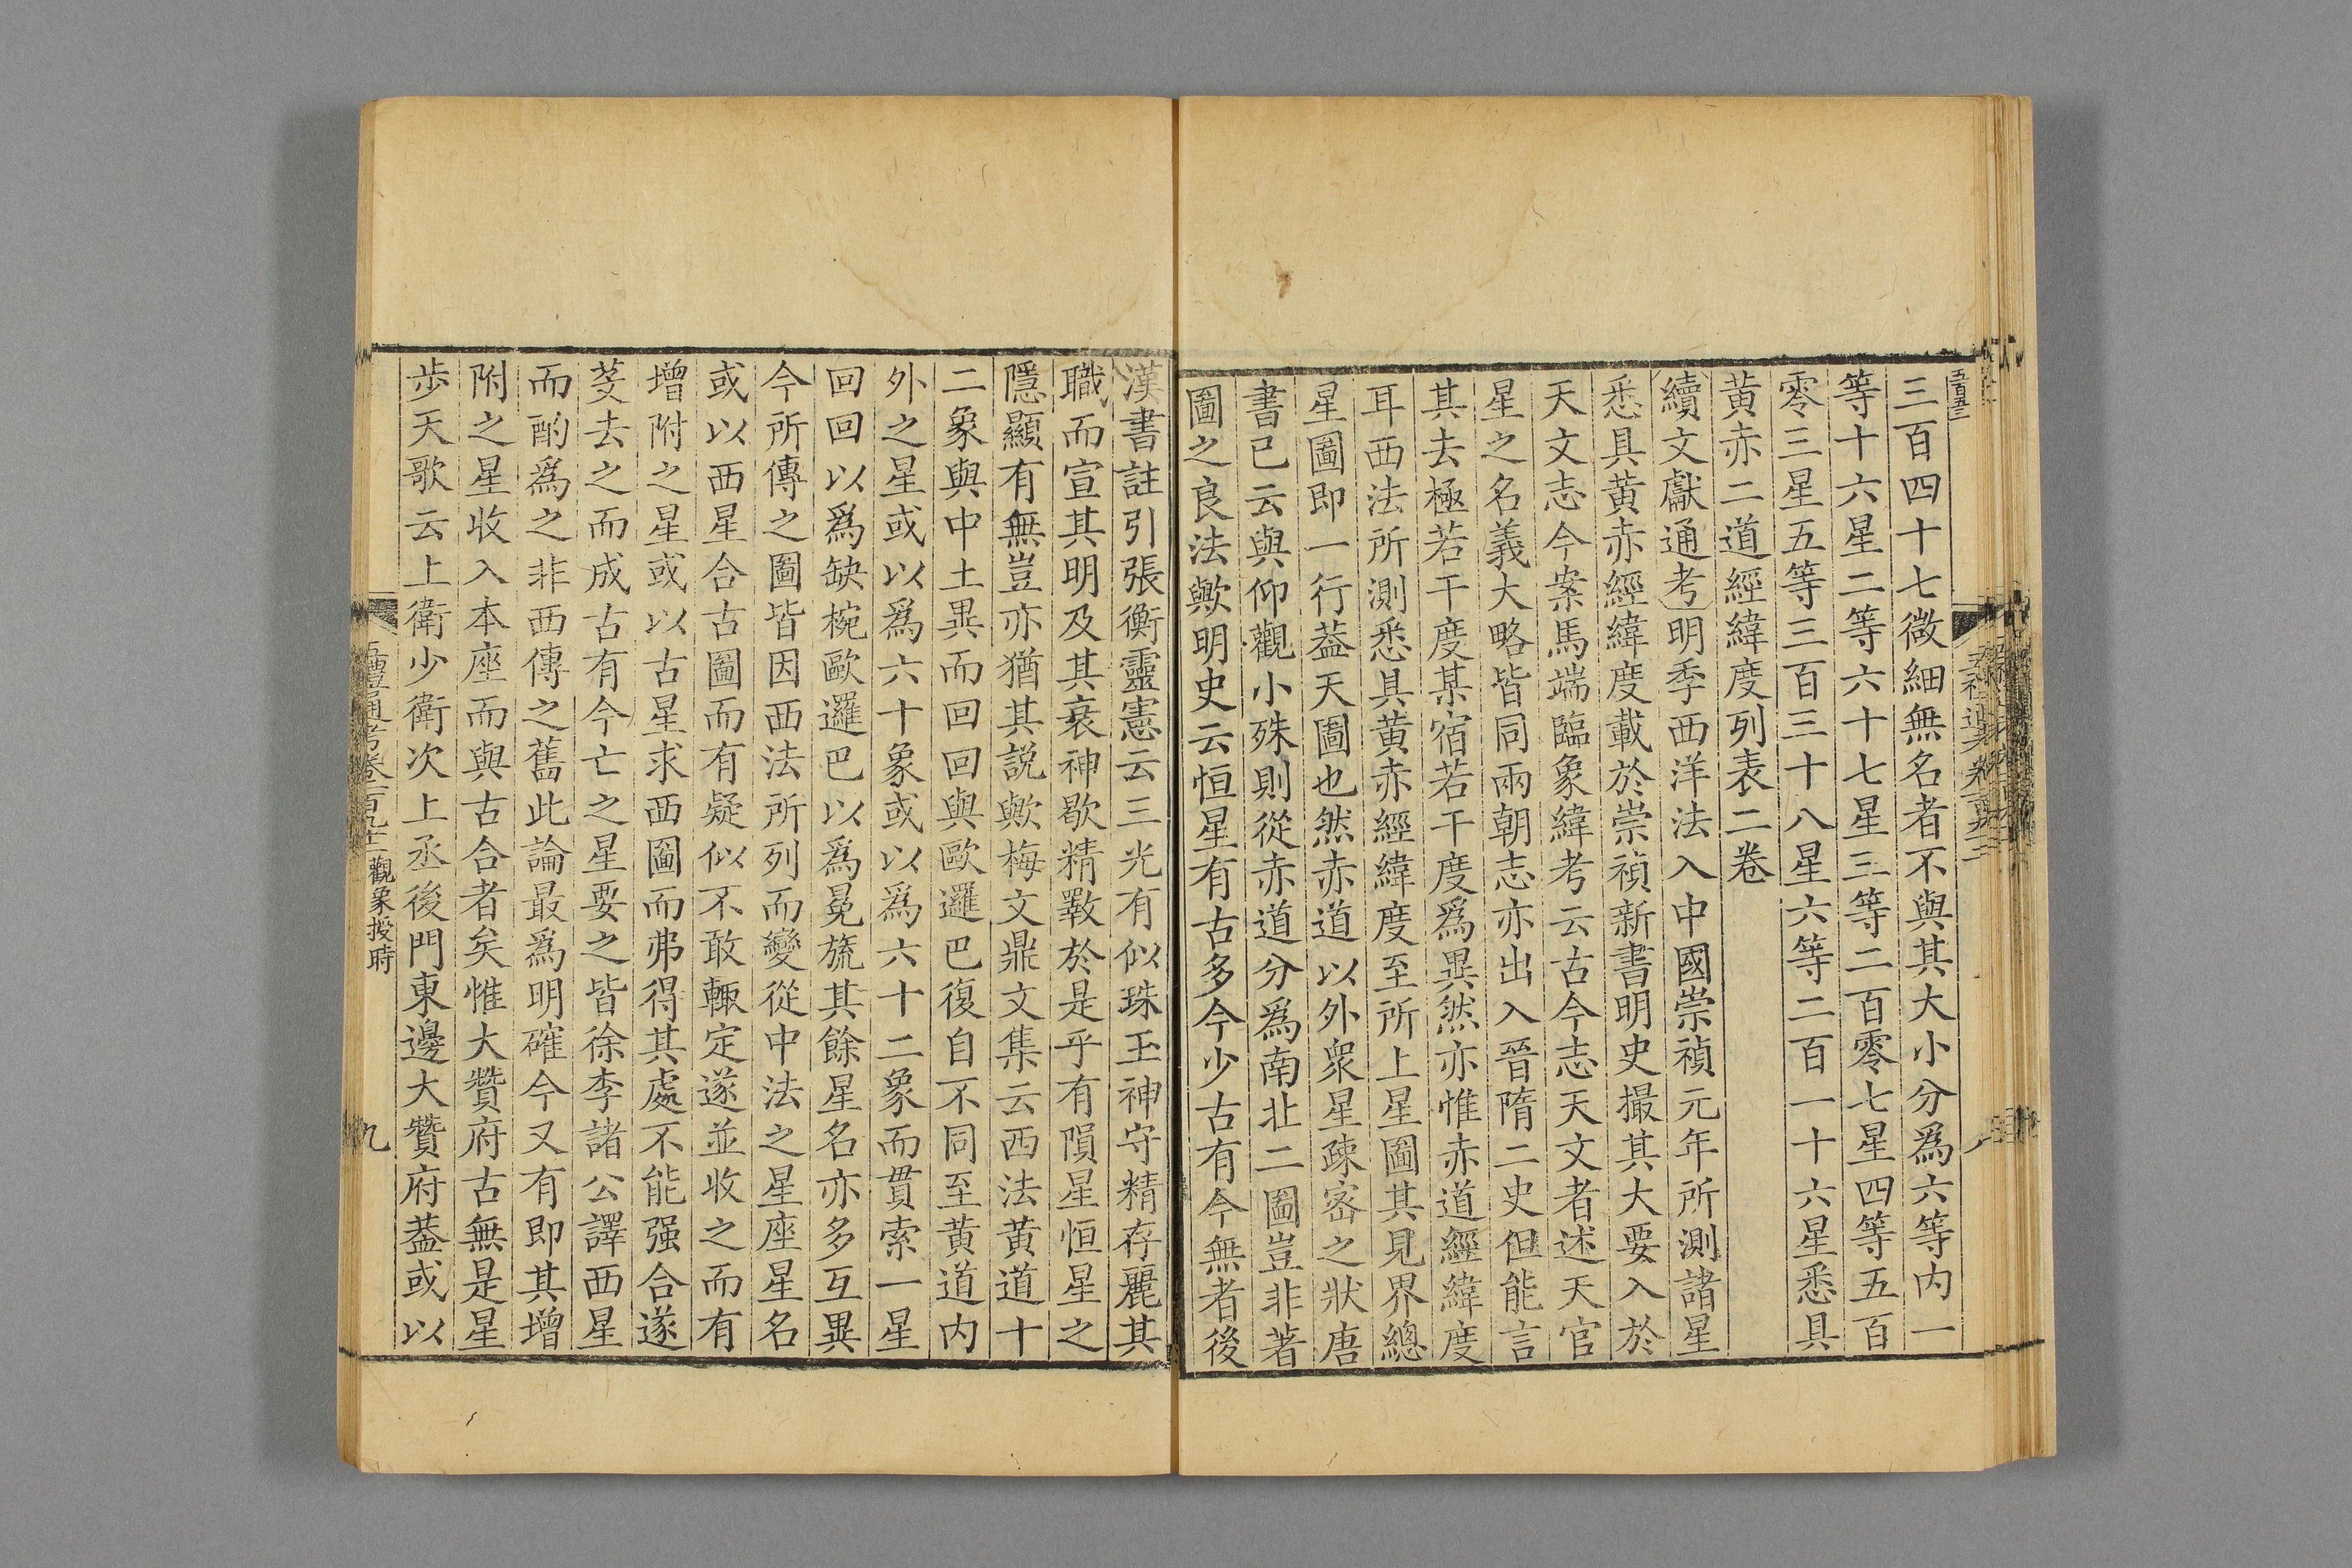 三百四十七微細無名者不與其大小分爲六等内一
等十六星二等六十七星三等二百零七星四等五百
零三星五等三百三十八星六等二百一十六星悉具
黄赤二道經緯度列表二卷
續文獻通考明季西洋法入中國崇禎元年所測諸星
悉具黄赤經緯度載於崇禎新書明史撮其大要入於
天文志今案馬端臨象緯考云古今志天文者述天官
星之名義大略皆同兩朝志亦出入晉隋二史但能言
其去極若干度某宿若干度爲異然亦惟赤道經緯度
耳西法所測悉具黄赤經緯度至所上星圖其見界總
星圖即一行葢天圖也然赤道以外衆星疎宻之狀唐
書已云與仰觀小殊則從赤道分爲南北二圖豈非著
圖之良法歟明史云恒星有古多今少古有今無者後
漢書註引張衡靈憲云三光有似珠玉神守精存麗其
職而宣其明及其衰神歇精斁於是乎有隕星恒星之
隱顯有無豈亦猶其説歟梅文鼎文集云西法黄道十
二象與中土異而回回與歐邏巴復自不同至黄道内
外之星或以爲六十象或以爲六十二象而貫索一星
回回以爲缺椀歐邏巴以爲冕旒其餘星名亦多互異
今所傳之圖皆因西法所列而變從中法之星座星名
或以西星合古圖而有疑似不敢輒定遂並收之而有
增附之星或以古星求西圖而弗得其處不能强合遂
芟去之而成古有今亡之星要之皆徐李諸公譯西星
而酌爲之非西傳之舊此論最爲明確今又有即其增
附之星收入本座而與古合者矣惟大贊府古無是星
步天歌云上衛少衛次上丞後門東邊大贊府葢或以
五禮通考卷一百九十二 觀象授時
九